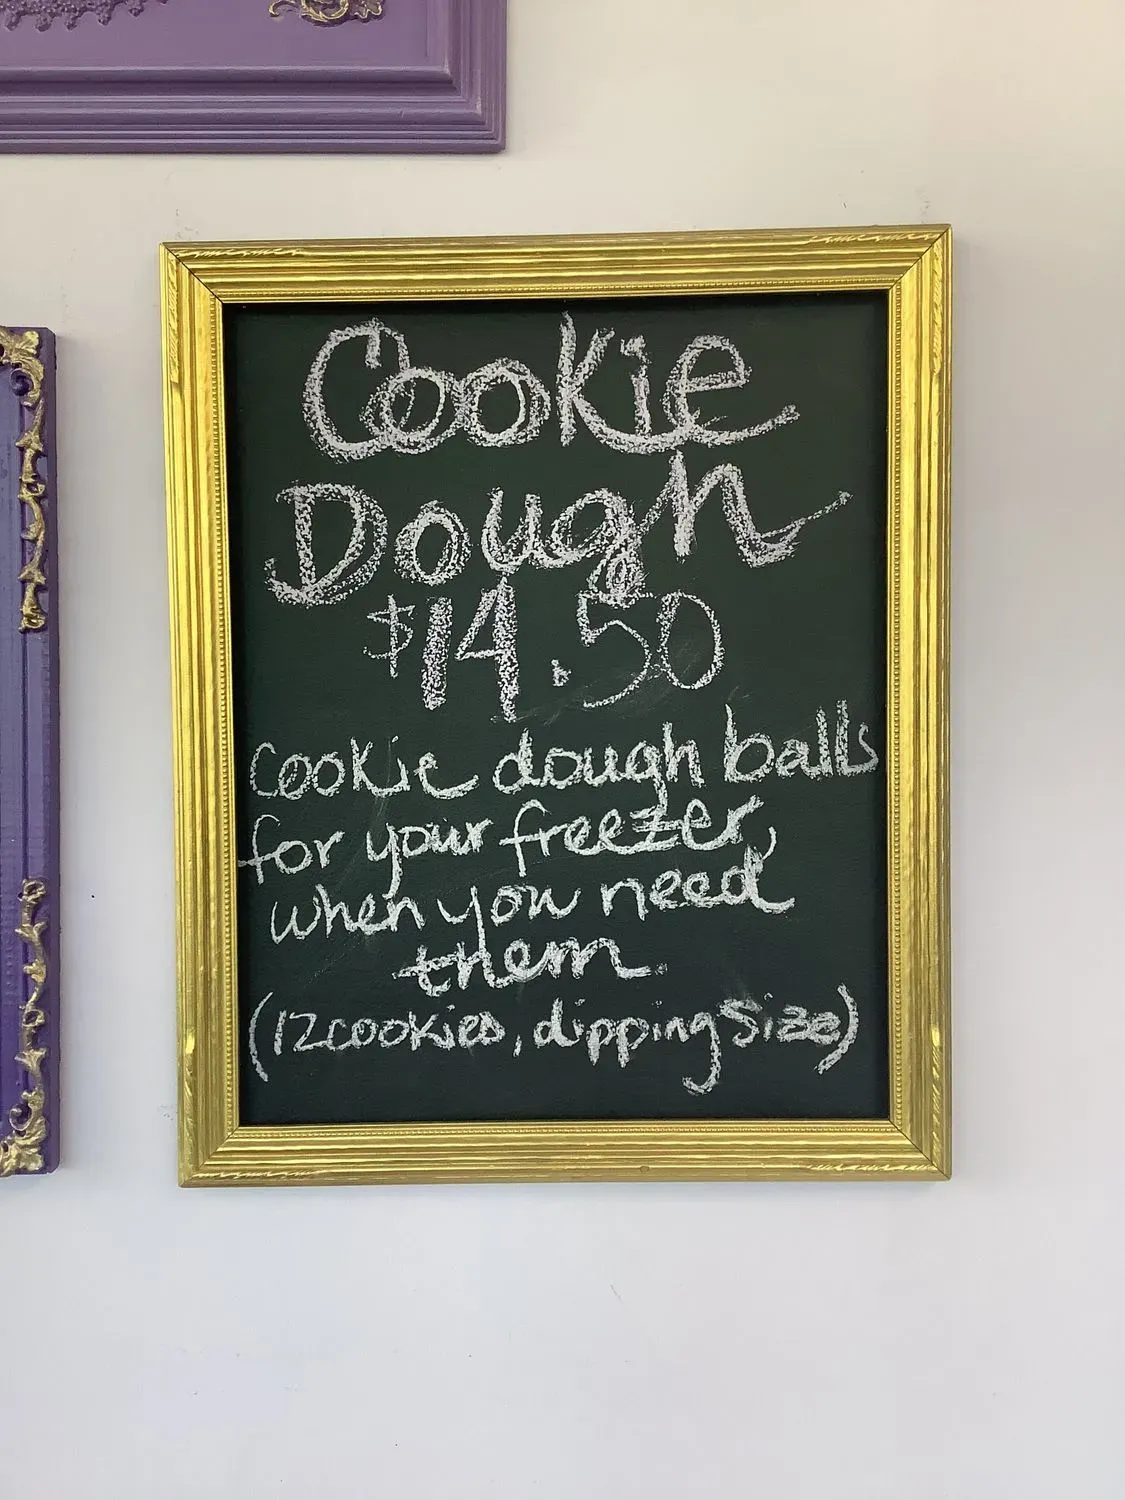 Cookie
Dough
$14.50
Cookie dough balls
for your freezer,
when you need
them.
(12 cookies, dipping size)